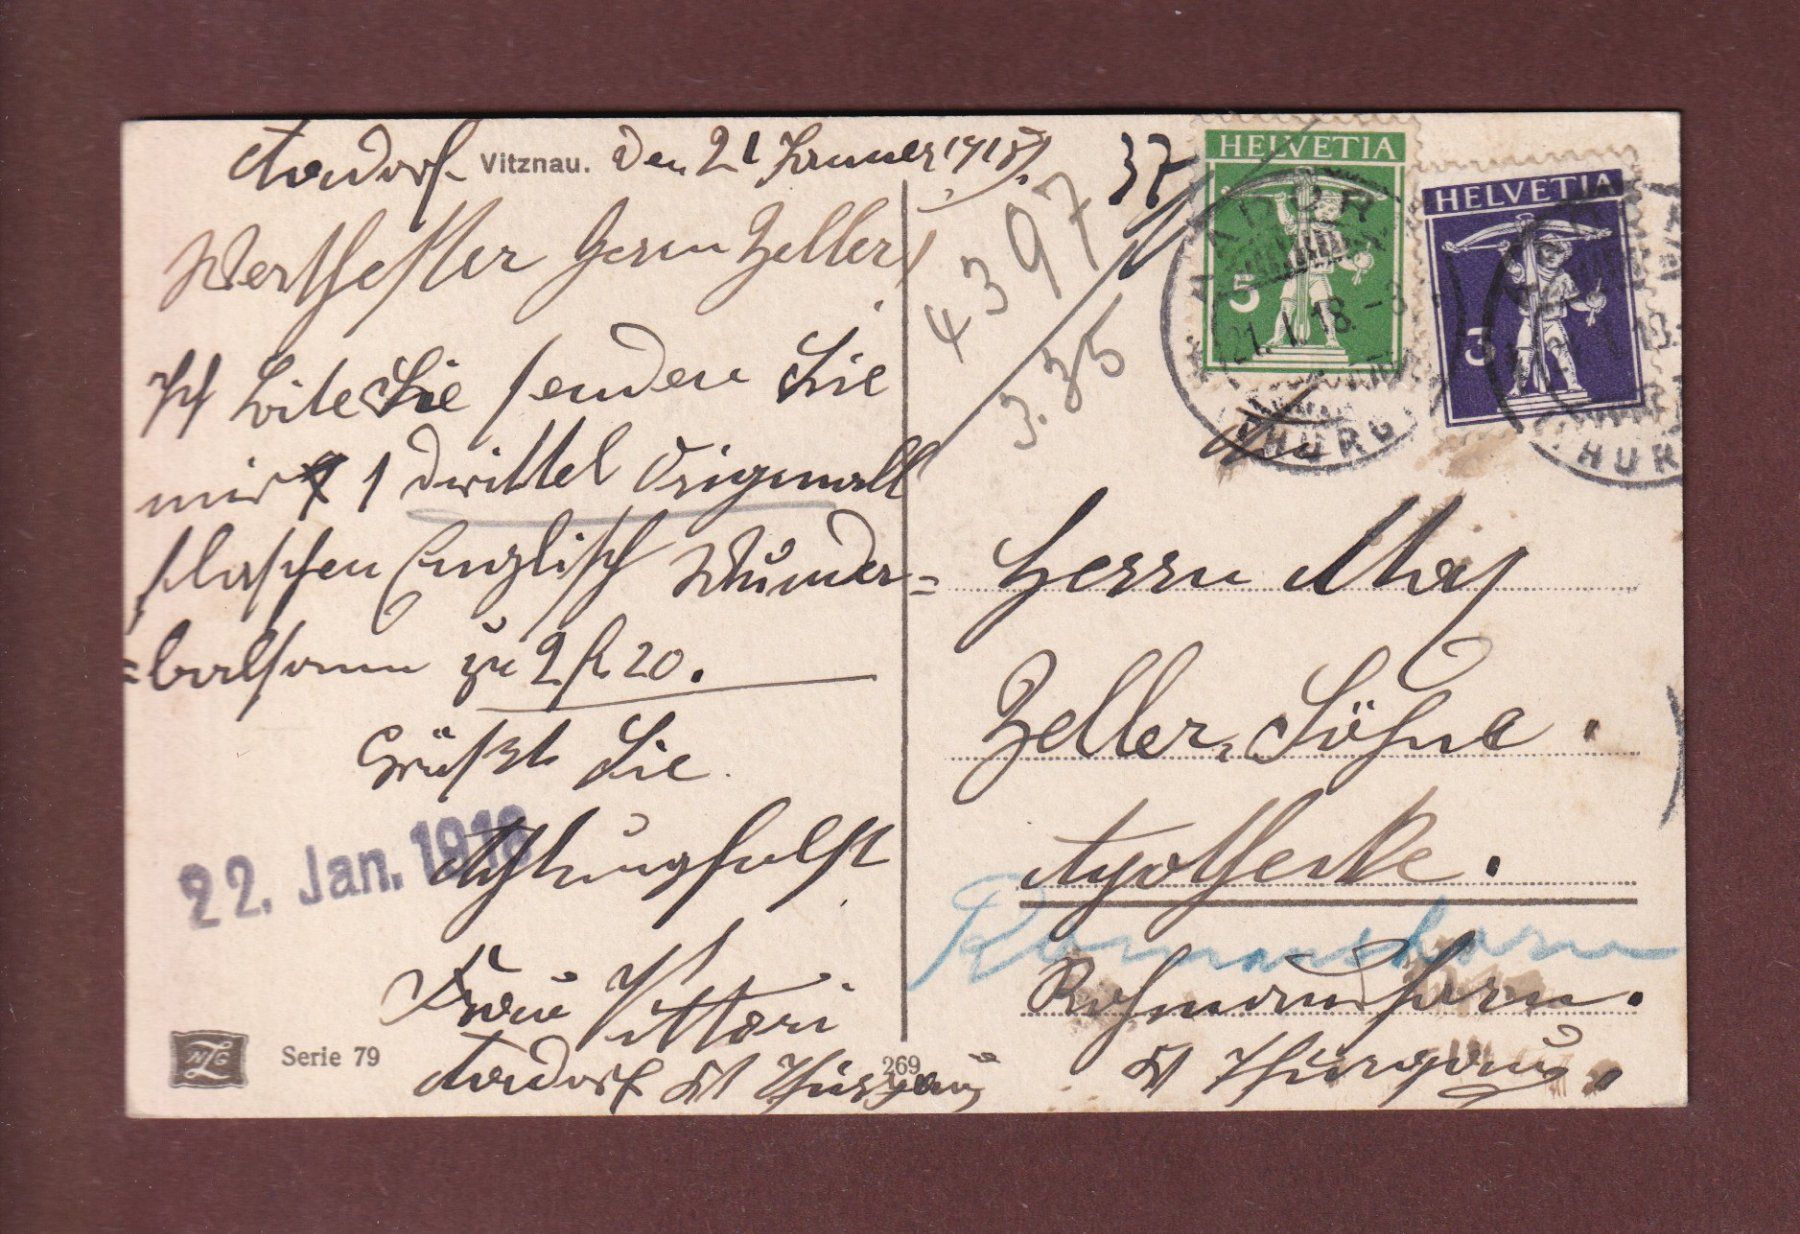 Aadorf Vitznau. den 21 Januer 1918
Werthester Herrn Zeller!
Ich bite Sie senden Sie
mir 1 drittel Originall
flaschen Englisch Wunder=
=balsam zu 2 fr 20.
Grüßt Sie
Achtungsfolst
22. Jan. 1918
Frau Vittori
Aadorf Kt Thurgau
Serie 79
269
37
4397
3.35
HELVETIA
5
HELVETIA
3
AADORF
21. I. 18. - 8
(THURG
THUR
An
Herrn Max
Zeller, Söhne.
Apotheke.
Romanshorn
Rohmanshorn.
Kt Thurgau.